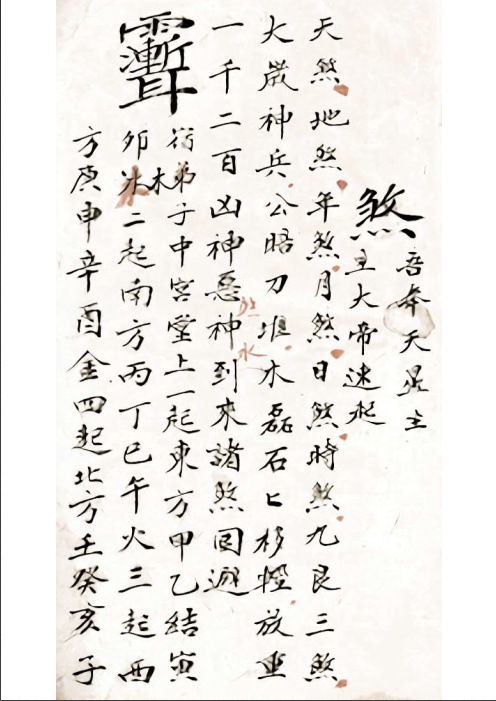 吾奉天星主
煞主大帝速起
天煞地煞年煞月煞日煞時煞九良三煞
大歲神兵公暗刀堆木磊石匕杉樫放重
一千二百凶神惡神到來諸煞回避
煞水
弟子中宮堂上一起東方甲乙結寅
卯木二起南方丙丁巳午火三起西
方庚申辛酉金四起北方壬癸亥子